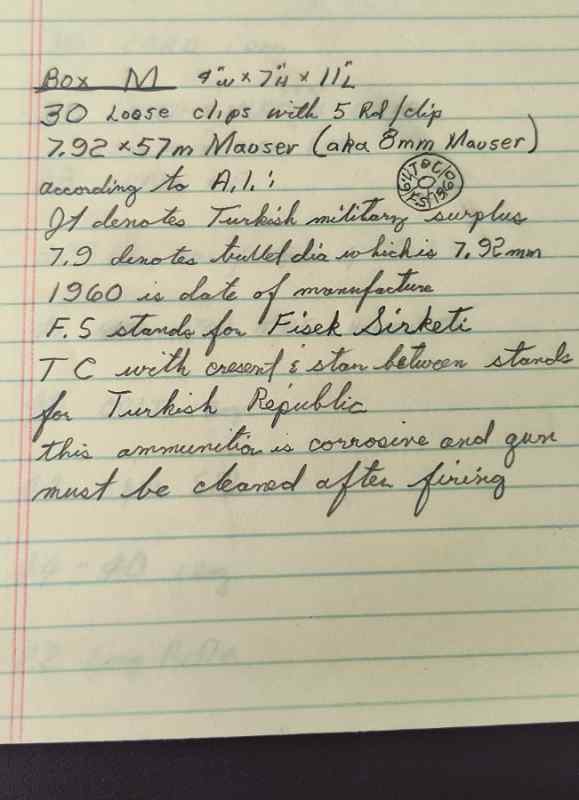 Box M 4"W x 7"H x 11"L
30 Loose clips with 5 Rd/clip
7.92 x57m Mauser (aka 8mm Mauser)
according to A.I.:
It denotes Turkish military surplus
7.9 denotes bullet dia which is 7.92mm
1960 is date of manufacture
F.S stands for Fisek Sirketi
T C with cresent & star between stands
for Turkish Republic
this ammunition is corrosive and gun
must be cleaned after firing